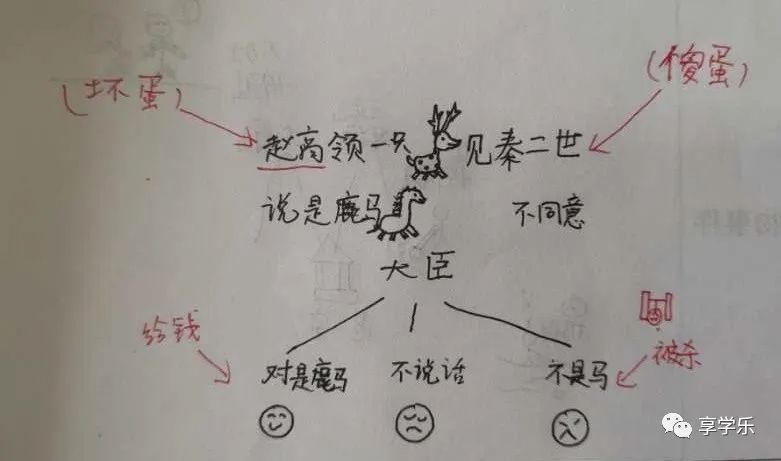 (坏蛋)
(傻蛋)
赵高领一只 见秦二世
说是鹿马 不同意
大臣
给钱
被杀
对是鹿马 不说话 不是马
享学乐